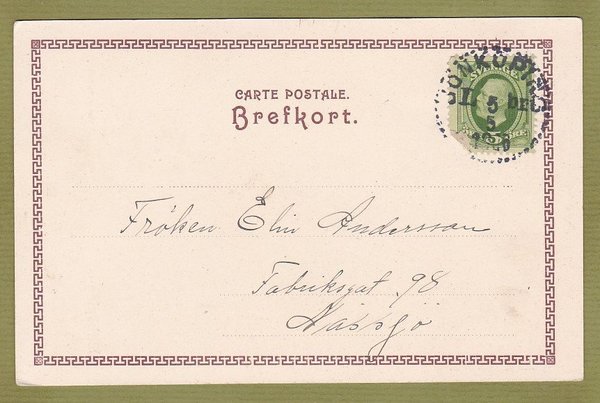 JÖNKÖPING
SVERIGE
5
5
ÖRE
CARTE POSTALE.
Brefkort.
Fröken Elin Andersson
Fabriksgat. 98
Nässjö